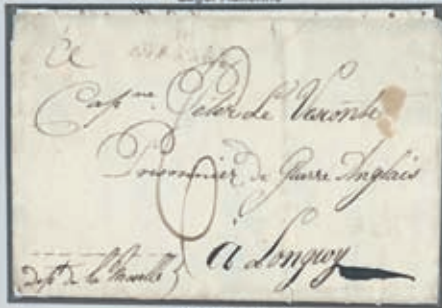 Cap.ne Peter Le Vesconte
Prisonnier de Guerre Anglais
à Longwy
Dep.t de la Moselle